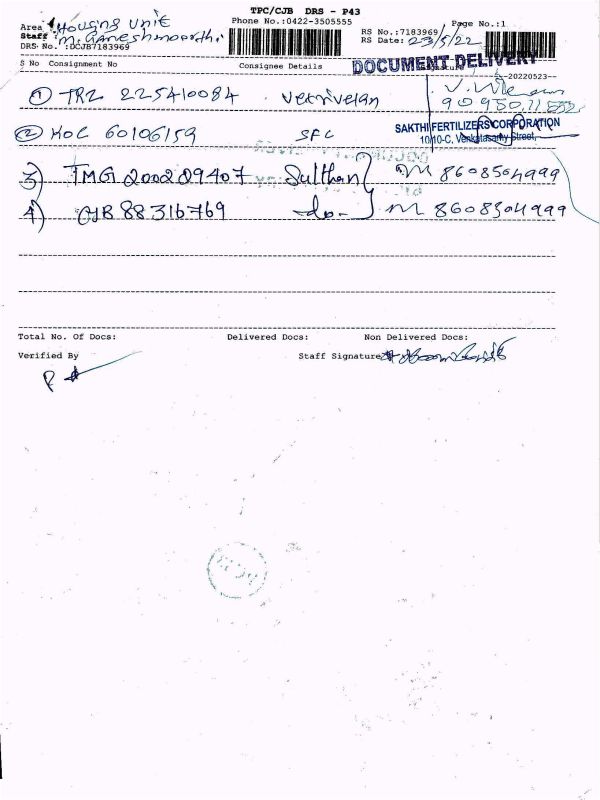 TPC/CJB DRS - P43
Area Housing Unit
Phone No.:0422-3505555
Page No.:1
Staff M. Ganeshmoorthi
RS No.:7183969
RS Date: 23/5/22
DRS No. :DCJB7183969
DOCUMENT DELIVERY
S No Consignment No Consignee Details Signature
20220523-
1 TRZ 225410084 Vetrivelan
2 KOC 60106159 SFC
SAKTHI FERTILIZERS CORPORATION
10/10-C, Venkatasamy Street,
3) TMG 200209407 Sulthan M 8608504999
4) CJB 88316769 -do- M 8608504999
Total No. Of Docs: Delivered Docs: Non Delivered Docs:
Verified By Staff Signature